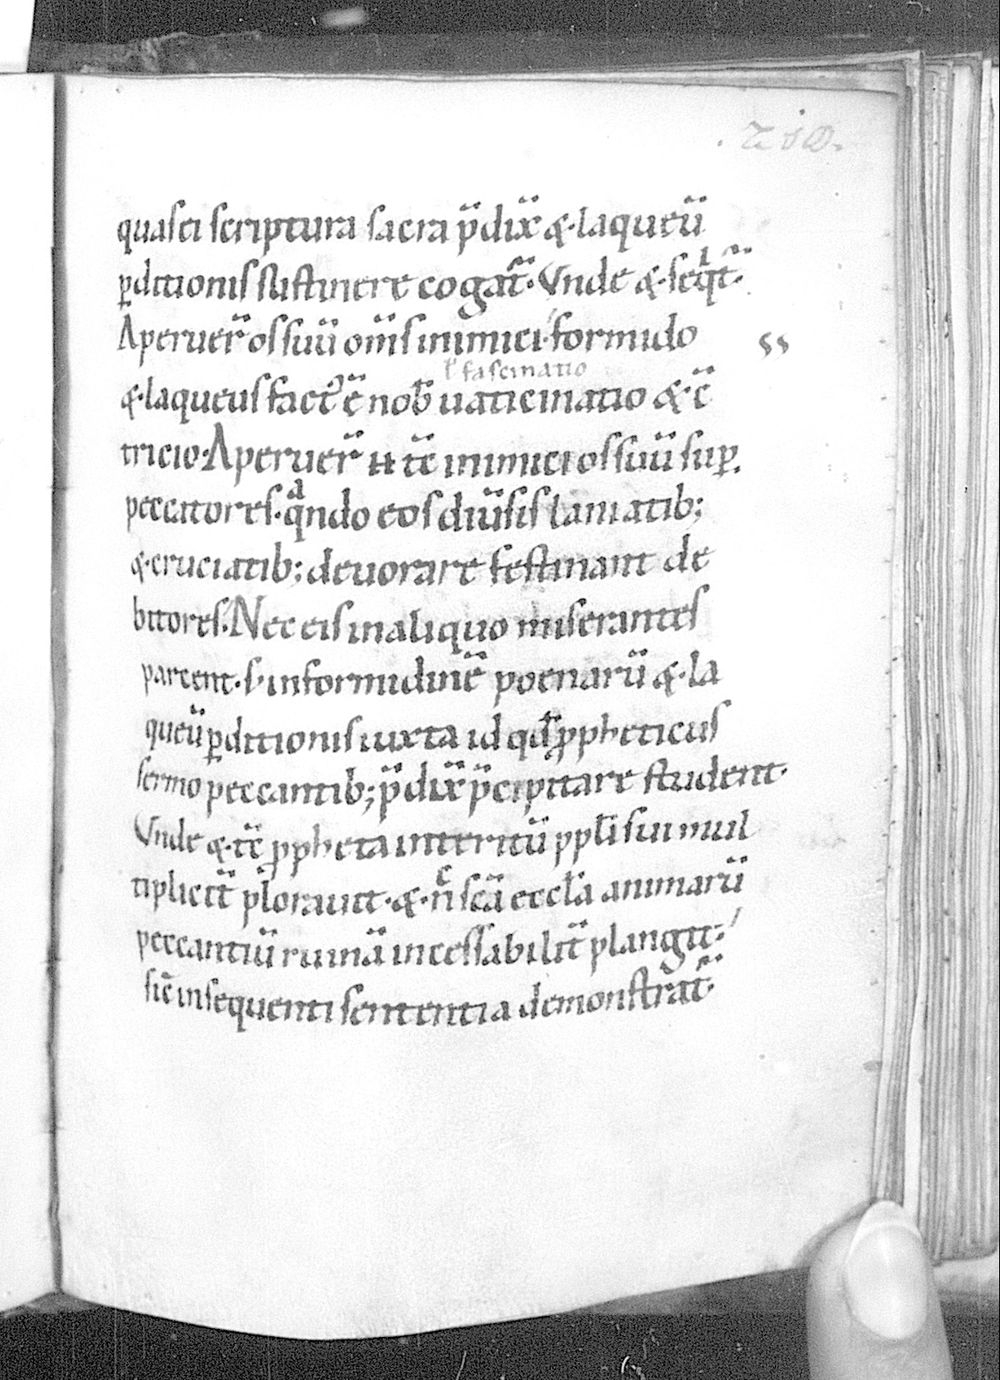 .210.
quasci scriptura sacra p̃dix̃ &·laqueũ
ꝑditionis sustinere cogat̃·Vnde &·seqͥt̃·
Aperuer̃ os suũ om̃s inimici·formido
ł fascinatio
&·laqueus fact᾽ ẽ nob̃ uaticinatio &·c̃
tricio·Aperuer̃ H tc̃ inimici os suũ suꝑ
peccatores·qᵃndo eos diũsis laniatib;
&·cruciatib; deuorare festinant de
bitores·Nec eis in aliquo miserantes
parcent·s᾽ in formidinẽ poenarũ &·la
queũ ꝑditionis iuxta id qđ ꝓpheticus
sermo peccantib; p̃dix̃ p̃cipitare student·
Vnde &·tc̃ ꝓpheta interitũ ppłi sui mul
tiplicit̃ plorauit·&·nᶜ sc̃a eccła animarũ
peccantiũ ruinã incessabilit̃ plangit·
sic̃ in sequenti sententia demonstrat̃·